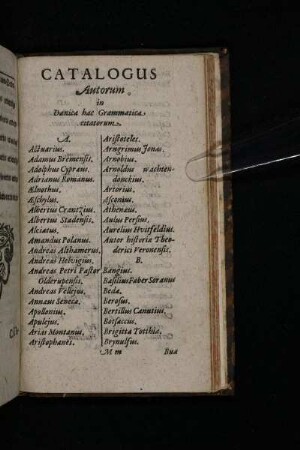 CATALOGUS
Autorum
in
Danica hac Grammatica
citatorum.
A.
Actuarius.
Adamus Bremensis.
Adolphus Cypraus.
Adrianus Romanus.
Ælnothus.
Æschylus.
Albertus Crantzius.
Albertus Stadensis.
Alciatus.
Amandus Polanus.
Andreas Althamerus.
Andreas Helvigius.
Andreas Petri Pastor
Andreas Vellejus.
Annaus Seneca.
Apollonius.
Apulejus.
Arias Montanus.
Aristophanes.
Aristoteles.
Arngrimus Jonas.
Arnobius.
Arnoldus
Artorius.
Asconius.
Athenaus.
Aulus Persius.
Aurelius
Autor historia Theo-
derici Veronensis.
B.
Bangius.
Basilius Faber Soranus
Beda.
Berosus.
Bertillus Canutius.
Brigitta
Brynulfus.
M iii
Bua